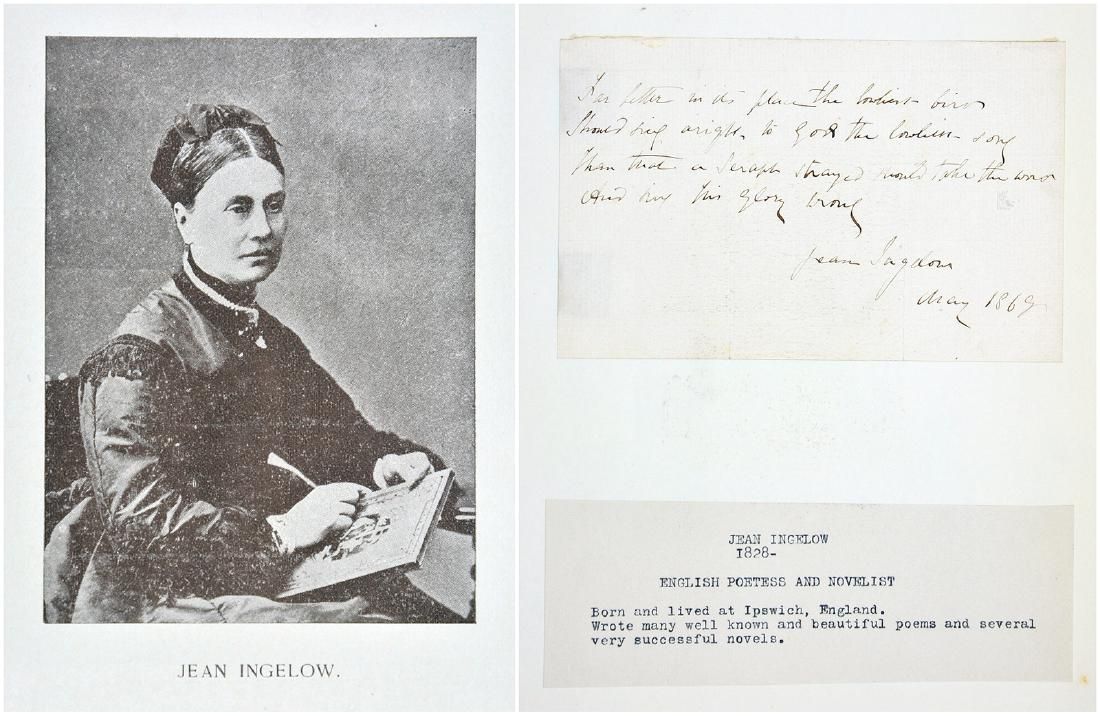 JEAN INGELOW.
Far better in its place the lowliest bird
Should sing aright to God the lowliest song
Than that a Seraph strayed should take the word
And sing his glory wrong
Jean Ingelow
May 1869
JEAN INGELOW
1828-
ENGLISH POETESS AND NOVELIST
Born and lived at Ipswich, England.
Wrote many well known and beautiful poems and several
very successful novels.